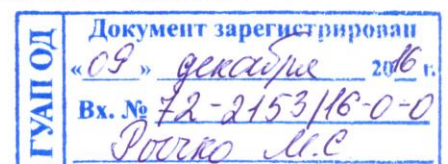 ГУАП ОД
Документ зарегистрирован
«09» декабря 2016 г.
Вх. № 72-2153/16-0-0
М.С.